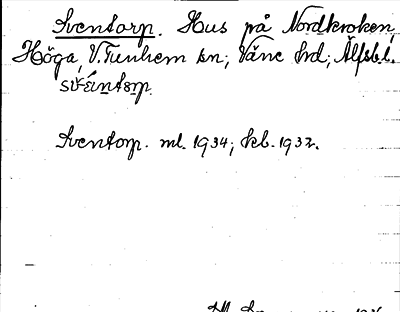 Sventorp. Hus på Nordkroken,
Höga, V. Tunhem sn; Väne hd; Älfsb. l.
Sventorp. ml. 1934; kb. 1932.